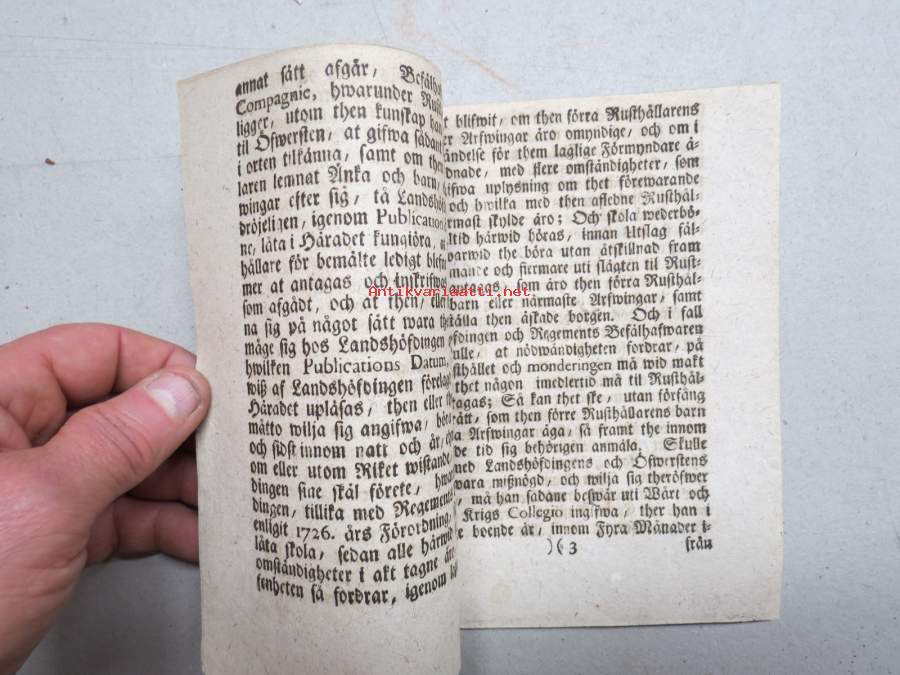 annat sätt afgår, Befälha
Compagnie, hwarunder Rust
ligger, utom then kunskap han
til Öfwersten, at gifwa sådant
i orten tilkänna, samt om then
laren lemnat Änka och barn,
wingar efter sig, tå Landshöf
dröjeligen, igenom Publication
ne, låta i Häradet kungiöra, at
hållare för bemälte ledigt blefne
mer at antagas och inskrifwas
som afgådt, och at then, eller
na sig på något sätt wara the
måge sig hos Landshöfdingen
hwilken Publications Datum,
wiß af Landshöfdingen föreläg
Häradet uplåsas, then eller the
måtto wilja sig angifwa, bör
och sidst innom natt och år,
om eller utom Riket wistande
dingen sine skäl förete, hwar
dingen, tillika med Regements
enligit 1726. års Förordning,
låta skola, sedan alle härwid
omständigheter i akt tagne äre
senheten så fordrar, igenom
t blifwit, om then förra Rusthållarens
er Arfwingar äro omyndige, och om i
ändelse för them laglige Förmyndare å-
dnade, med flere omständigheter, som
ifwa uplysning om thet förewarande
och hwilka med then afledne Rusthål-
rmast skylde äro; Och skola wederbö-
ltid härwid höras, innan Utslag fäl-
warwid the böra utan åtskillnad fram
mande och fiermare uti slägten til Rust-
antagas, som äro then förra Rusthål-
barn eller närmaste Arfwingar, samt
tälla then äskade borgen. Och i fall
fdingen och Regements Befälhafwaren
ulle, at nödwändigheten fordrar, på
sthållet och monderingen må wid makt
thet någon imedlertid må til Rusthål-
tagas; Så kan thet ske, utan förfång
rätt, som then förre Rusthållarens barn
a Arfwingar äga, så framt the innom
de tid sig behörigen anmäla. Skulle
med Landshöfdingens och Öfwerstens
wara mißnögd, och wilja sig theröfwer
, må han sådane beswär uti Wårt och
Krigs Collegio ingifwa, ther han i
e boende är, innom Fyra Månader i-
)( 3 från
Antikvariaatti.net